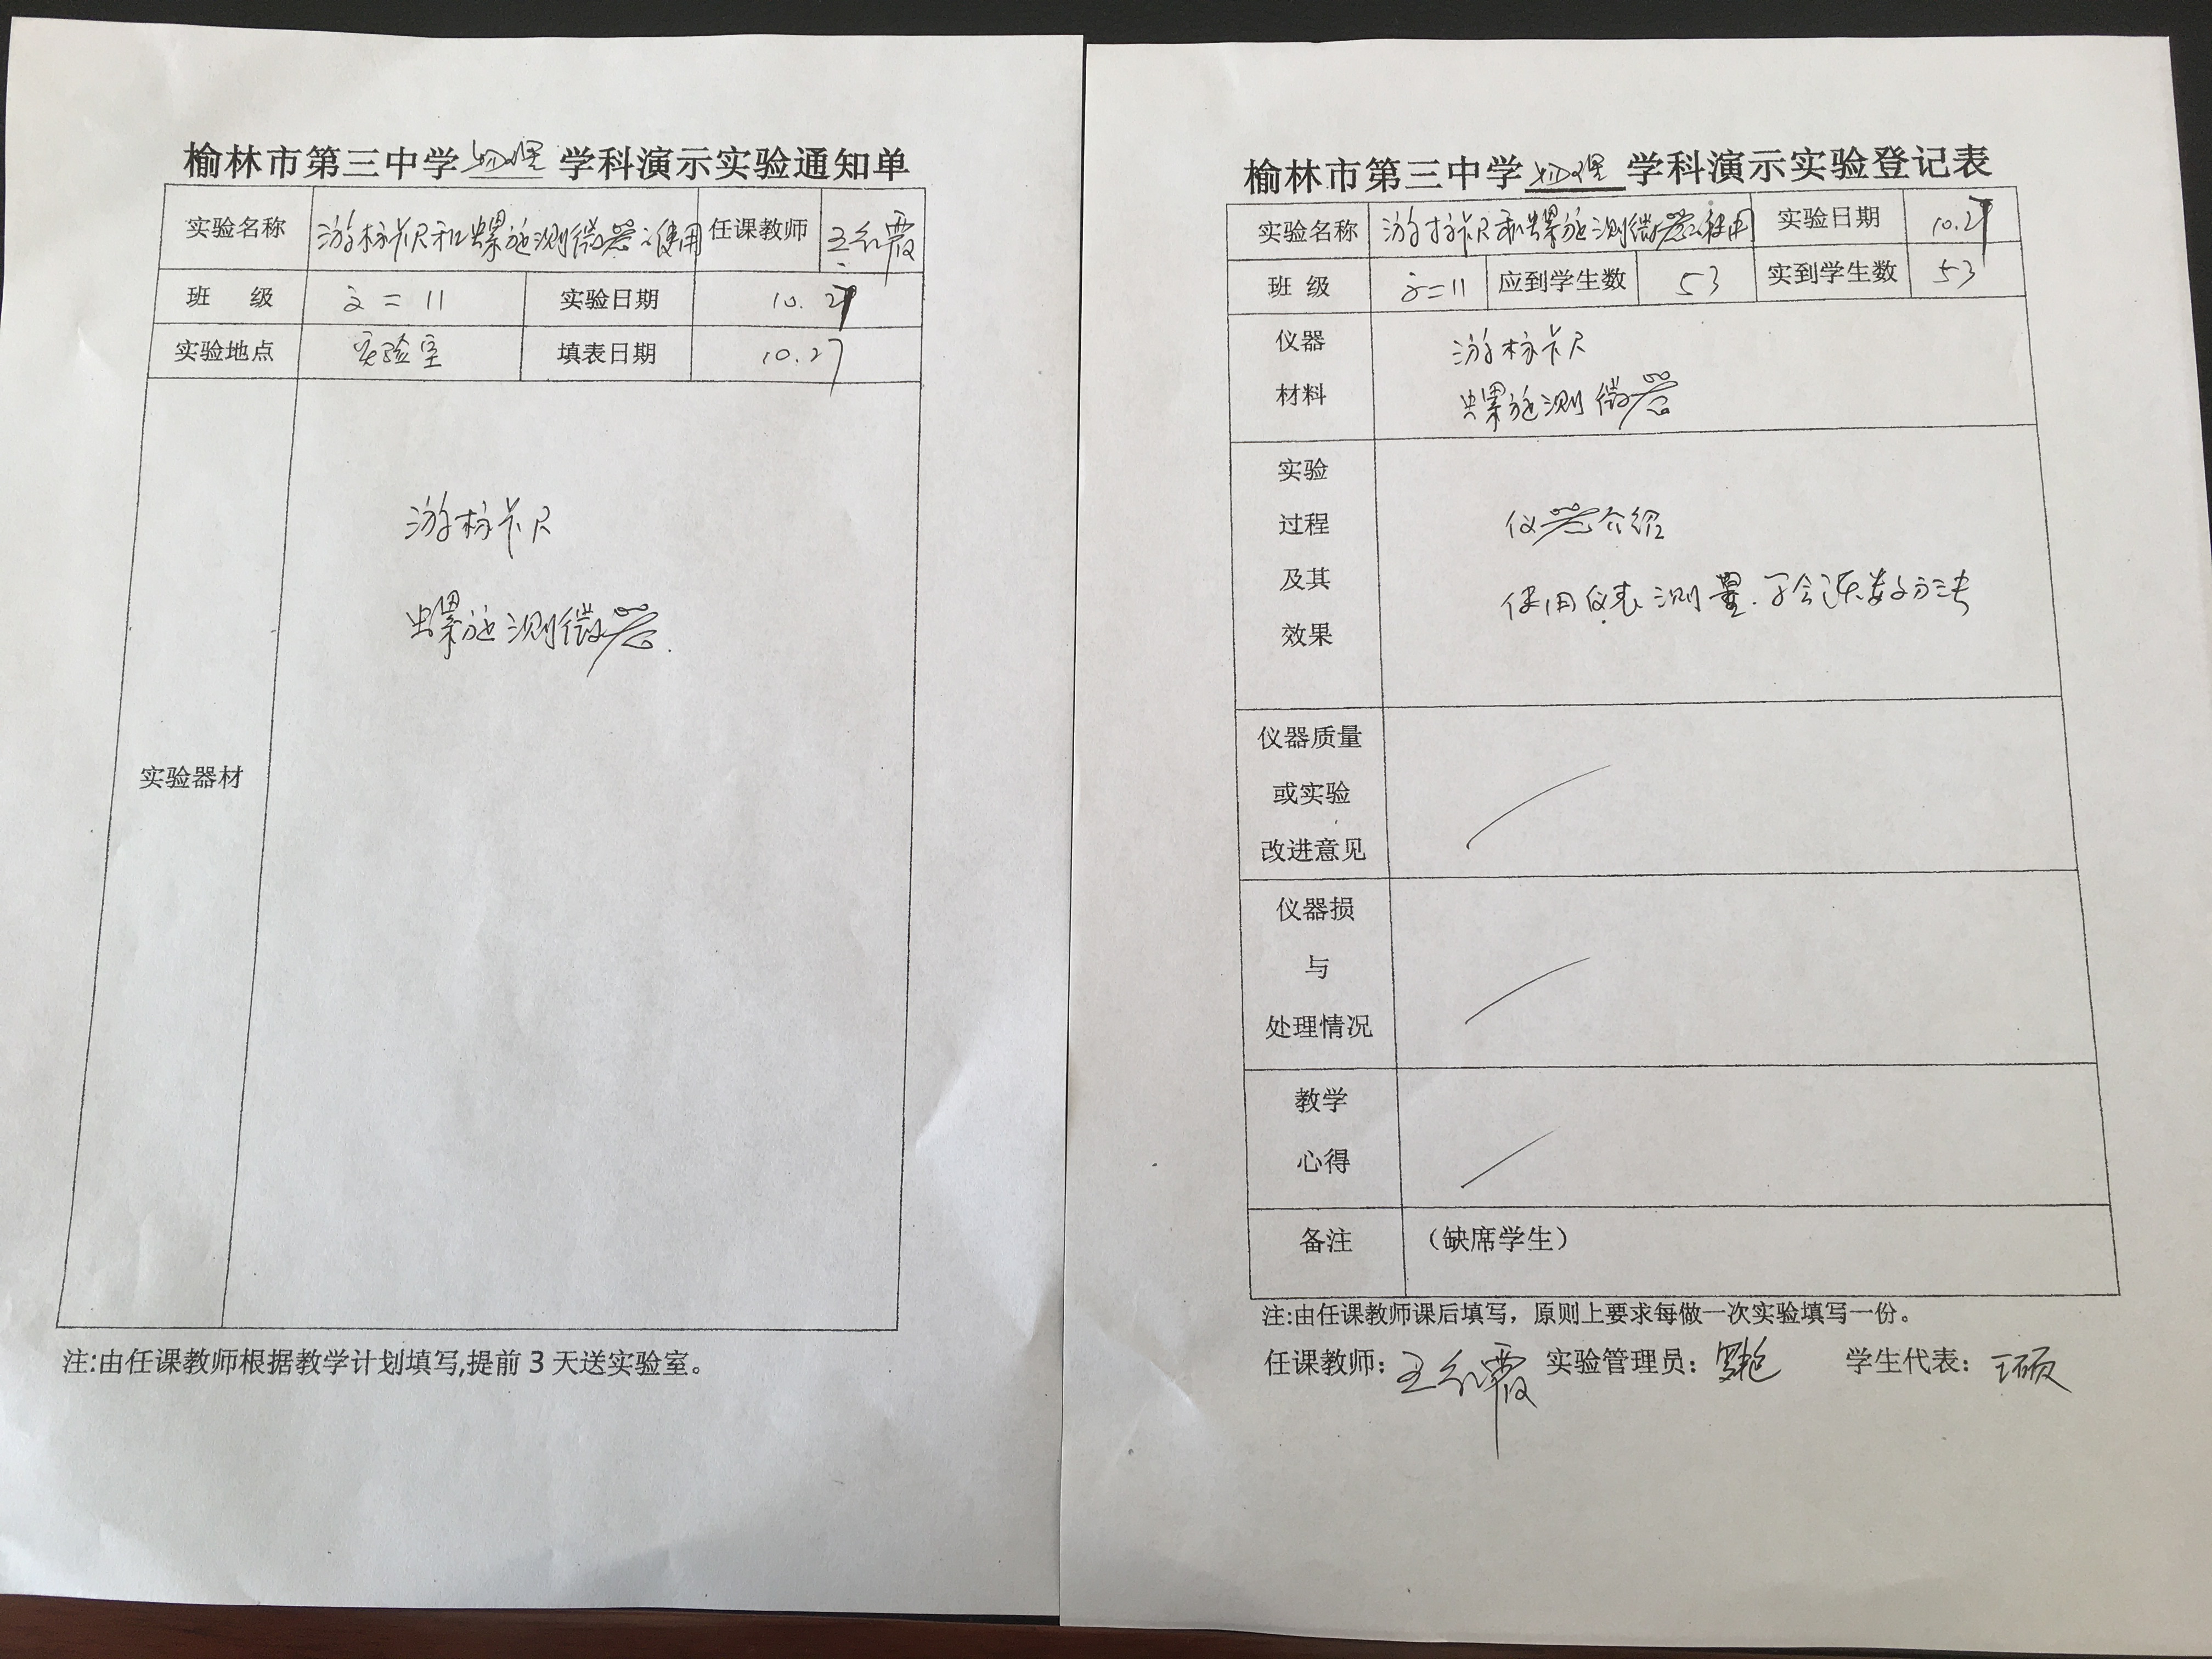 榆林市第三中学物理学科演示实验通知单
实验名称 游标卡尺和螺旋测微器的使用 任课教师 王红霞
班 级 高二11 实验日期 10.27
实验地点 实验室 填表日期 10.27
实验器材
游标卡尺
螺旋测微器.
注:由任课教师根据教学计划填写,提前3天送实验室。
榆林市第三中学物理学科演示实验登记表
实验名称 游标卡尺和螺旋测微器的使用 实验日期 10.27
班 级 高二11 应到学生数 53 实到学生数 53
仪器
材料
游标卡尺
螺旋测微器
实验
过程
及其
效果
仪器介绍
使用仪表测量.学会读数方法
仪器质量
或实验
改进意见
仪器损
与
处理情况
教学
心得
备注 （缺席学生）
注:由任课教师课后填写，原则上要求每做一次实验填写一份。
任课教师：王红霞 实验管理员： 学生代表：王硕